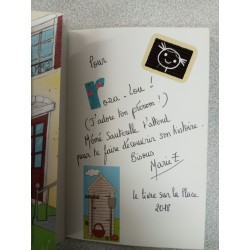 Pour
Rosa-Lou !
(J'adore ton prénom !)
Mémé Sauterelle t'attend
pour te faire découvrir son histoire.
Bisous
Marie Z
Le Livre sur la Place
2018